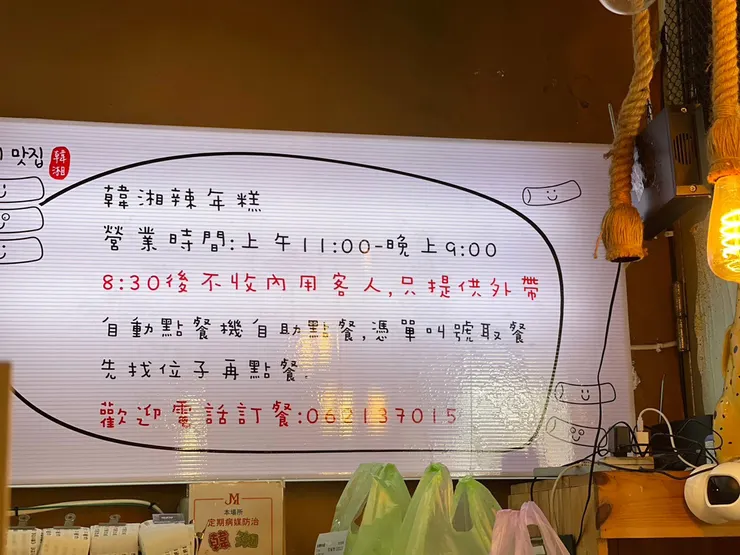 맛집
韓湘
韓湘辣年糕
營業時間:上午11:00-晚上9:00
8:30後不收內用客人,只提供外帶
自動點餐機自助點餐,憑單叫號取餐
先找位子再點餐.
歡迎電話訂餐:062137015
本場所
定期病媒防治
韓湘